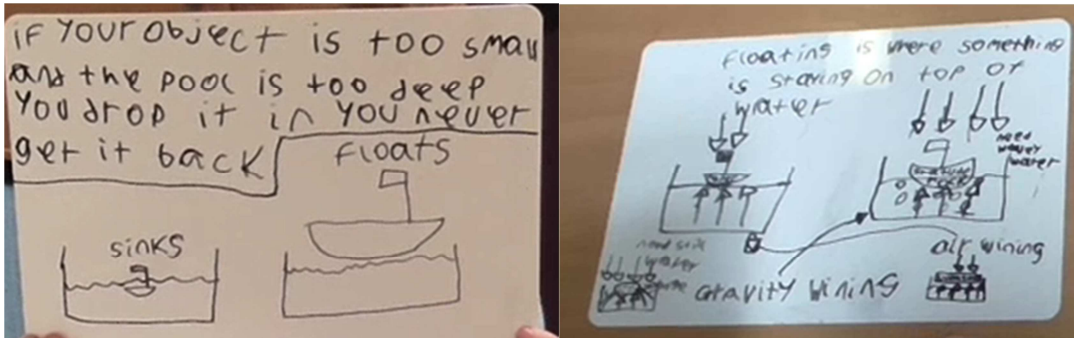 if your object is too small
and the pool is too deep
you drop it in you never
get it back
floats
sinks
floating is where something
is staying on top of
water
need
water
water
air wining
gravity wining